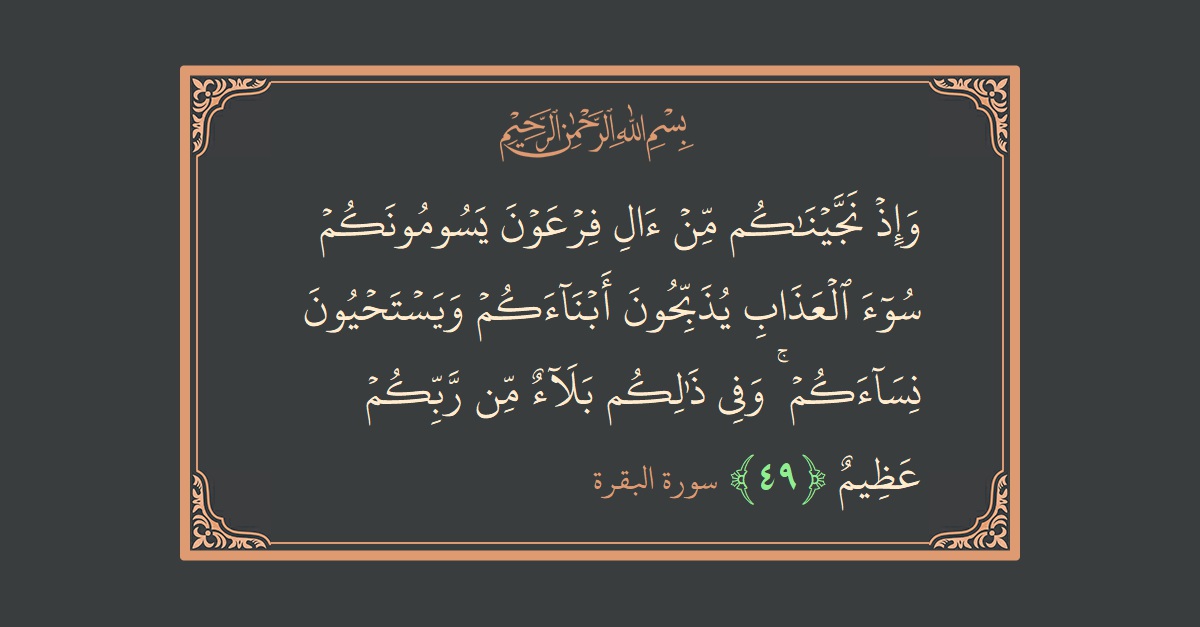 بِسْمِ ٱللَّهِ ٱلرَّحْمَٰنِ ٱلرَّحِيمِ
وَإِذْ نَجَّيْنَٰكُم مِّنْ ءَالِ فِرْعَوْنَ يَسُومُونَكُمْ
سُوٓءَ ٱلْعَذَابِ يُذَبِّحُونَ أَبْنَآءَكُمْ وَيَسْتَحْيُونَ
نِسَآءَكُمْ ۚ وَفِى ذَٰلِكُم بَلَآءٌ مِّن رَّبِّكُمْ
عَظِيمٌ ﴿٤٩﴾ سورة البقرة